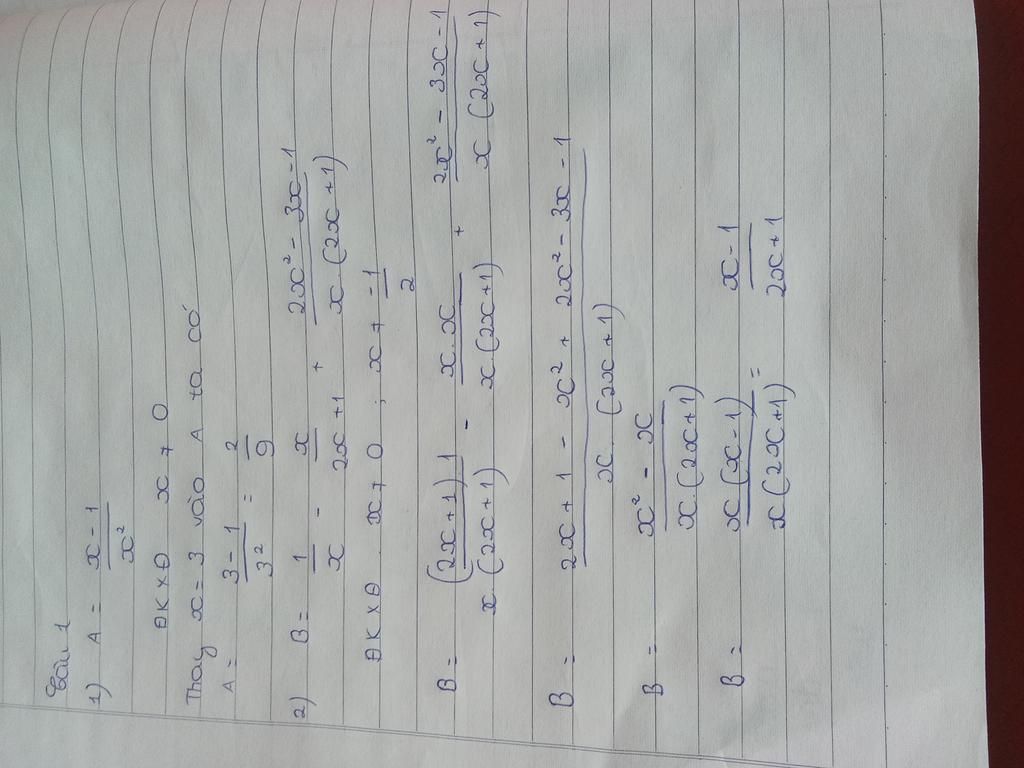 Câu 1
1) A = \frac{x-1}{x^2}
ĐKXĐ x ≠ 0
Thay x = 3 vào A ta có
A = \frac{3-1}{3^2} = \frac{2}{9}
2) B = \frac{1}{x} - \frac{x}{2x+1} + \frac{2x^2-3x-1}{x.(2x+1)}
ĐKXĐ x ≠ 0 ; x ≠ \frac{-1}{2}
B = \frac{(2x+1).1}{x.(2x+1)} - \frac{x.x}{x.(2x+1)} + \frac{2x^2-3x-1}{x(2x+1)}
B = \frac{2x+1-x^2+2x^2-3x-1}{x.(2x+1)}
B = \frac{x^2-x}{x.(2x+1)}
B = \frac{x(x-1)}{x(2x+1)} = \frac{x-1}{2x+1}